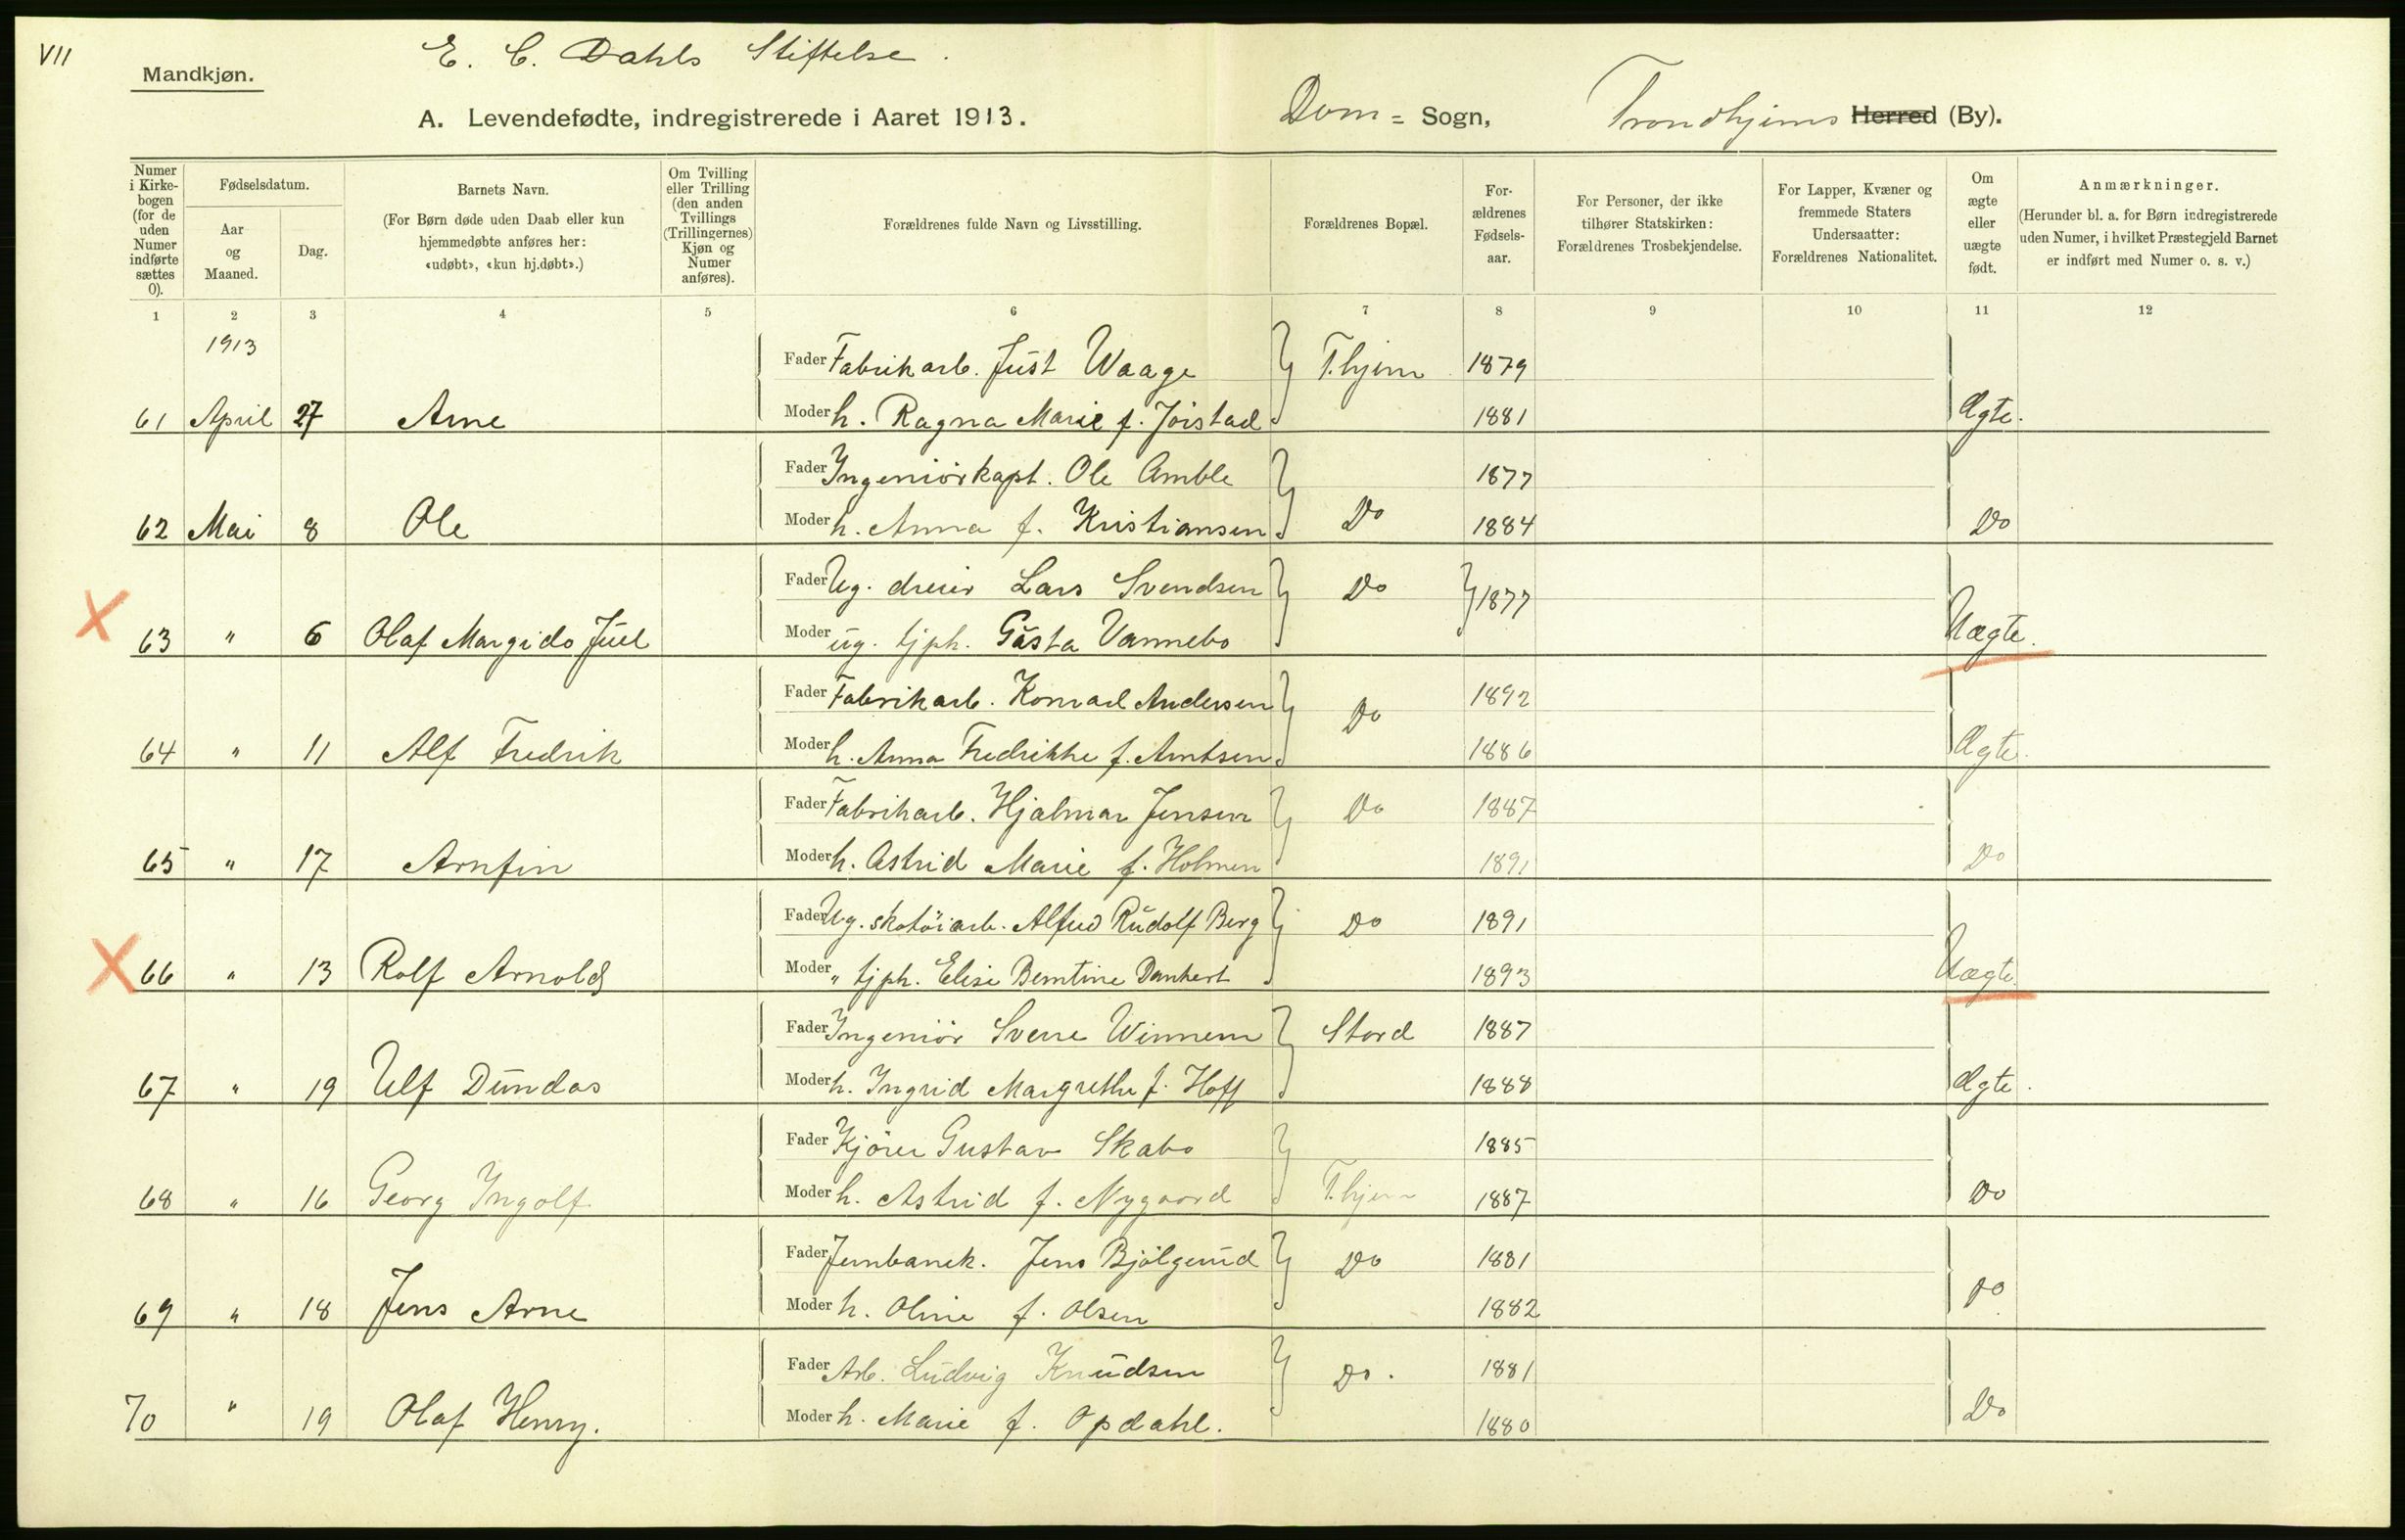 VII
Mandkjøn.
E. C. Dahls Stiftelse.
A. Levendefødte, indregistrerede i Aaret 1913.
Dom= Sogn, Trondhjems Herred (By).
Numer i Kirke- bogen (for de uden Numer indførte sættes 0).
Fødselsdatum.
Aar og Maaned.
Dag.
Barnets Navn.
(For Børn døde uden Daab eller kun hjemmedøbte anføres her: «udøbt», «kun hj.døbt».)
Om Tvilling eller Trilling (den anden Tvillings (Trillingernes) Kjøn og Numer anføres).
Forældrenes fulde Navn og Livsstilling.
Forældrenes Bopæl.
For- ældrenes Fødsels- aar.
For Personer, der ikke tilhører Statskirken: Forældrenes Trosbekjendelse.
For Lapper, Kvæner og fremmede Staters Undersaatter: Forældrenes Nationalitet.
Om ægte eller uægte født.
Anmærkninger.
(Herunder bl. a. for Børn indregistrerede uden Numer, i hvilket Præstegjeld Barnet er indført med Numer o. s. v.)
1 2 3 4 5 6 7 8 9 10 11 12
1913
Fader Fabrikarb. Just Waage T.hjem 1879
61 April 27 Arne Moder h. Ragna Marie f. Jørstad 1881 Ægte.
Fader Ingeniörkapt. Ole Amble 1877
62 Mai 8 Ole Moder h. Anna f. Kristiansen Do 1884 Do
Fader Ug. dreier Lars Svendsen Do 1877
63 " 6 Olaf Margido Juel Moder ug. tjph. Gusta Vannebo Uægte.
Fader Fabrikarb. Konrad Andersen Do 1892
64 " 11 Alf Fredrik Moder h. Anna Fredrikke f. Arntsen 1886 Ægte.
Fader Fabrikarb. Hjalmar Jensen Do 1887
65 " 17 Arnfin Moder h. Astrid Marie f. Holmen 1891 Do
Fader Ug. skotöiarb. Alfred Rudolf Berg Do 1891
66 " 13 Rolf Arnold Moder " tjph. Elise Berntine Dankert 1893 Uægte.
Fader Ingeniör Sverre Winnem Stord 1887
67 " 19 Ulf Dundas Moder h. Ingrid Margrethe f. Hoff 1888 Ægte.
Fader Kjörer Gustav Skabo 1885
68 " 16 Georg Ingolf Moder h. Astrid f. Nygaard T.hjem 1887 Do
Fader Jernbanek. Jens Bjölgerud Do 1881
69 " 18 Jens Arne Moder h. Oline f. Olsen 1882 Do
Fader Arb. Ludvig Knudsen Do. 1881
70 " 19 Olaf Henry. Moder h. Marie f. Opdahl. 1880 Do